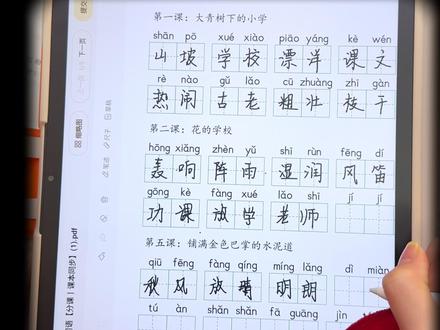 第一课：大青树下的小学
shān pō xué xiào piāo yáng kè wén
山坡 学校 漂洋 课文
rè nào gǔ lǎo cū zhuàng zhī gàn
热闹 古老 粗壮 枝干
第二课：花的学校
hōng xiǎng zhèn yǔ shī rùn fēng dí
轰响 阵雨 湿润 风笛
gōng kè fàng xué lǎo shī jí jí
功课 放学 老师
第五课：铺满金色巴掌的水泥道
qiū fēng fàng qíng míng lǎng dì miàn
秋风 放晴 明朗
tú àn shǎn shǎn fā guāng jìn
提交
下一页
缩略图
尺子
草稿
语【分课｜课本同步】(1).pdf